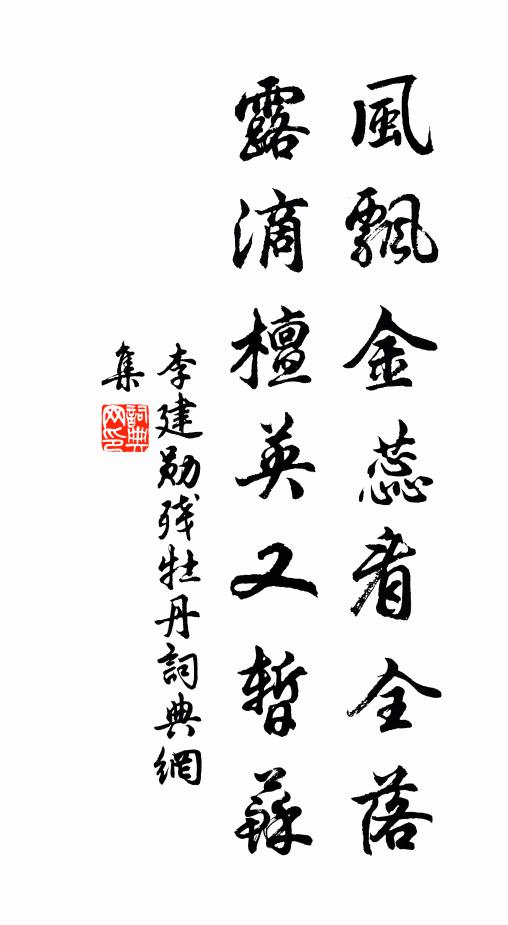 風飄金蕊看全落
露滴檀英又暫蘇
李建勛残牡丹詞典網
集
詞典
网印